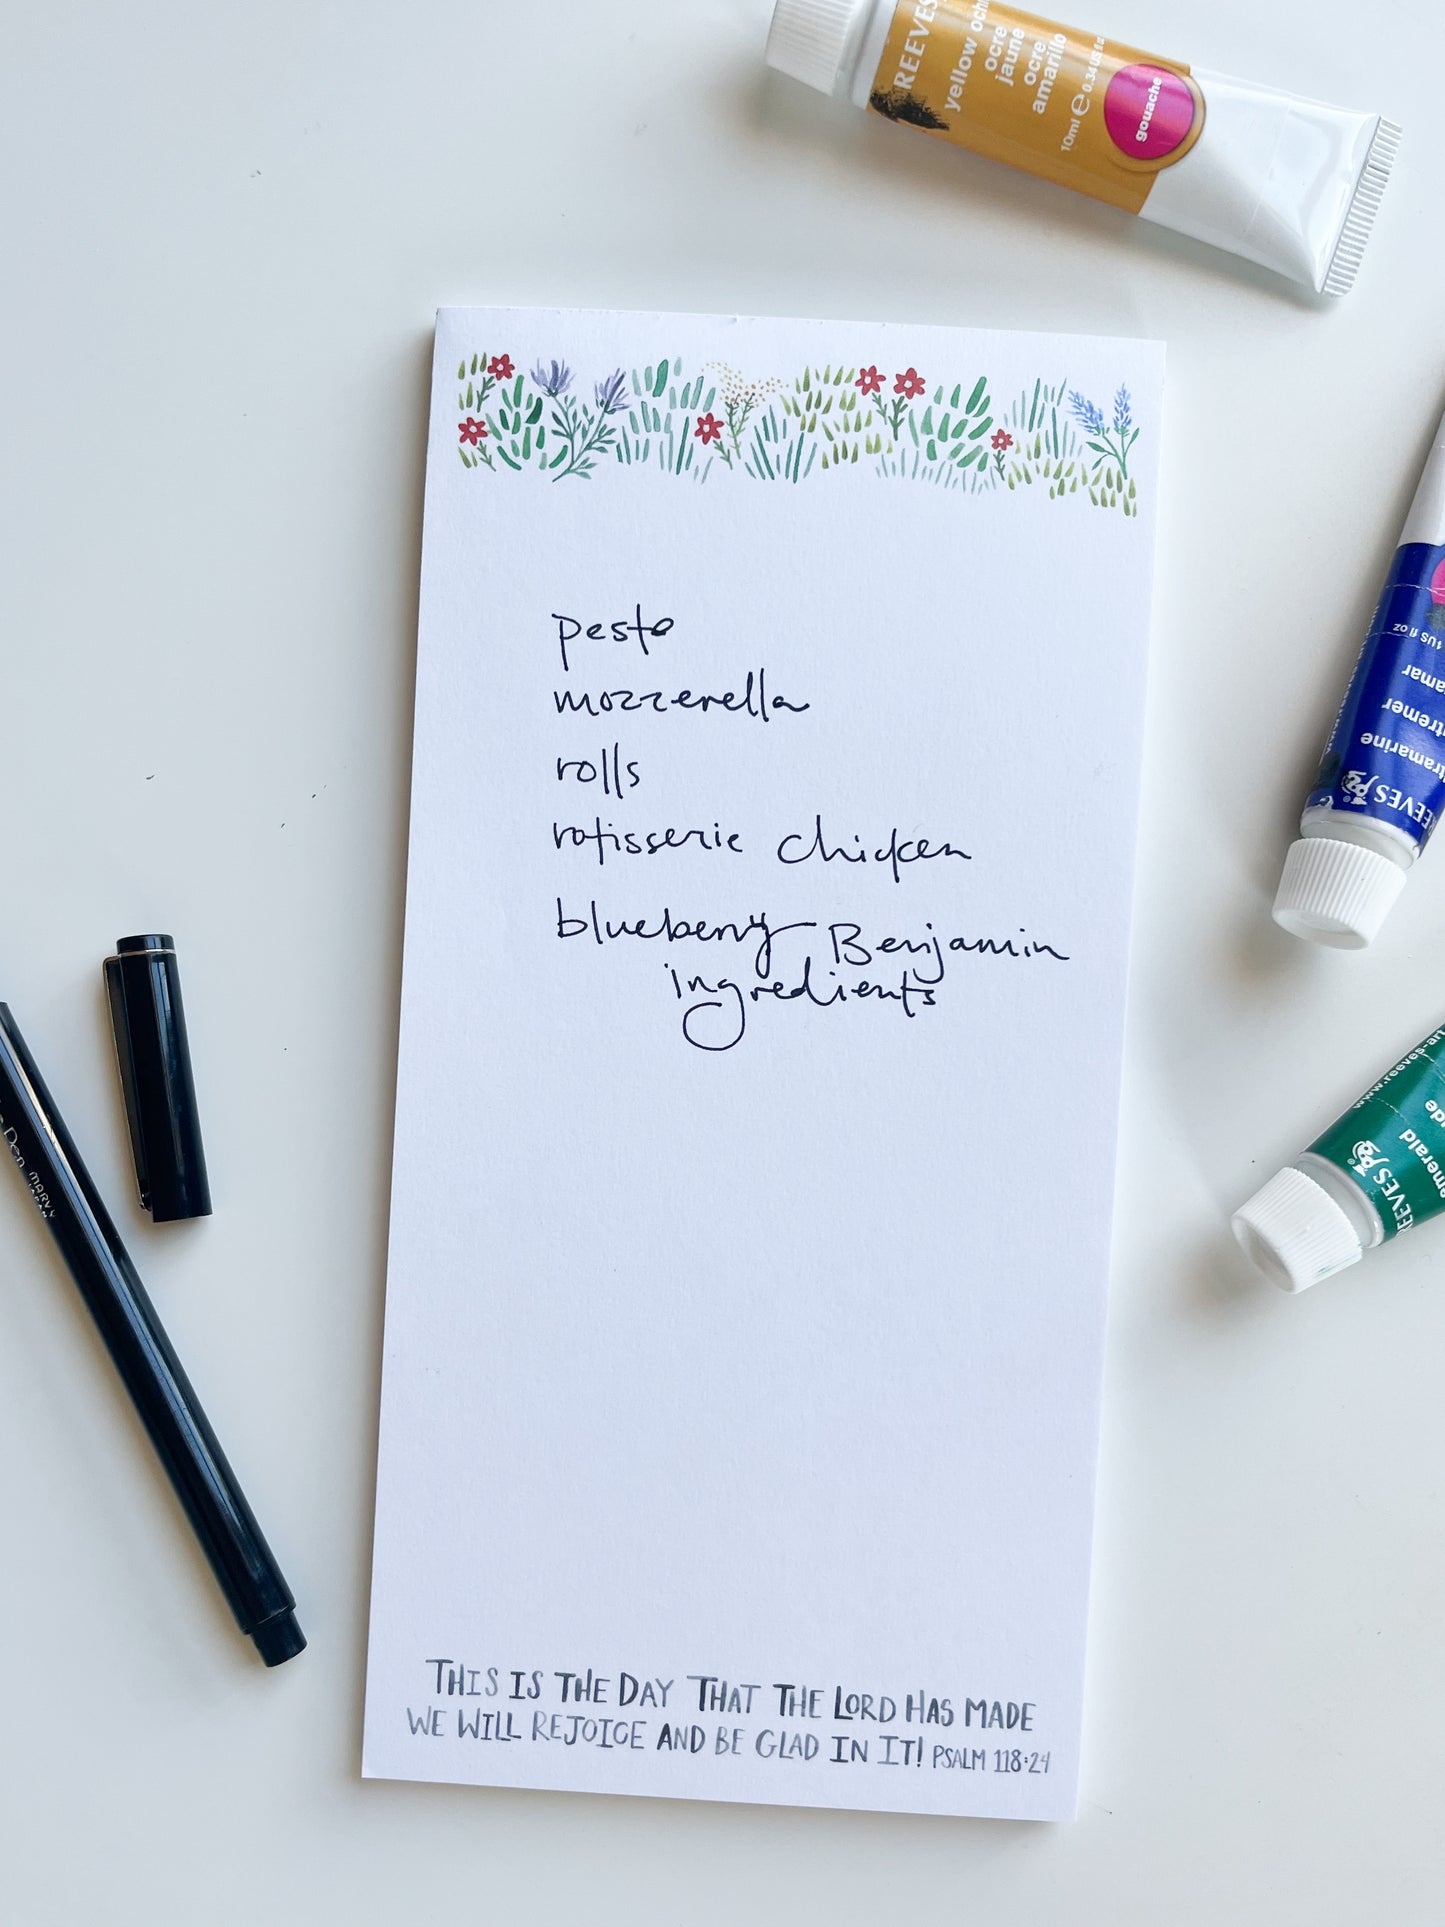 REEVES
yellow och
ocre
jaune
ocre
amarillo
10ml e 0.34 US fl oz
gouache
pesto
mozzerella
rolls
rotisserie chicken
blueberry Benjamin
ingredients
THIS IS THE DAY THAT THE LORD HAS MADE
WE WILL REJOICE AND BE GLAD IN IT! PSALM 118:24
US fl oz
amar
tremer
ltramarine
REEVES
www.reeves-art
emerald
REEVES
Pen
MARVY
JAPAN